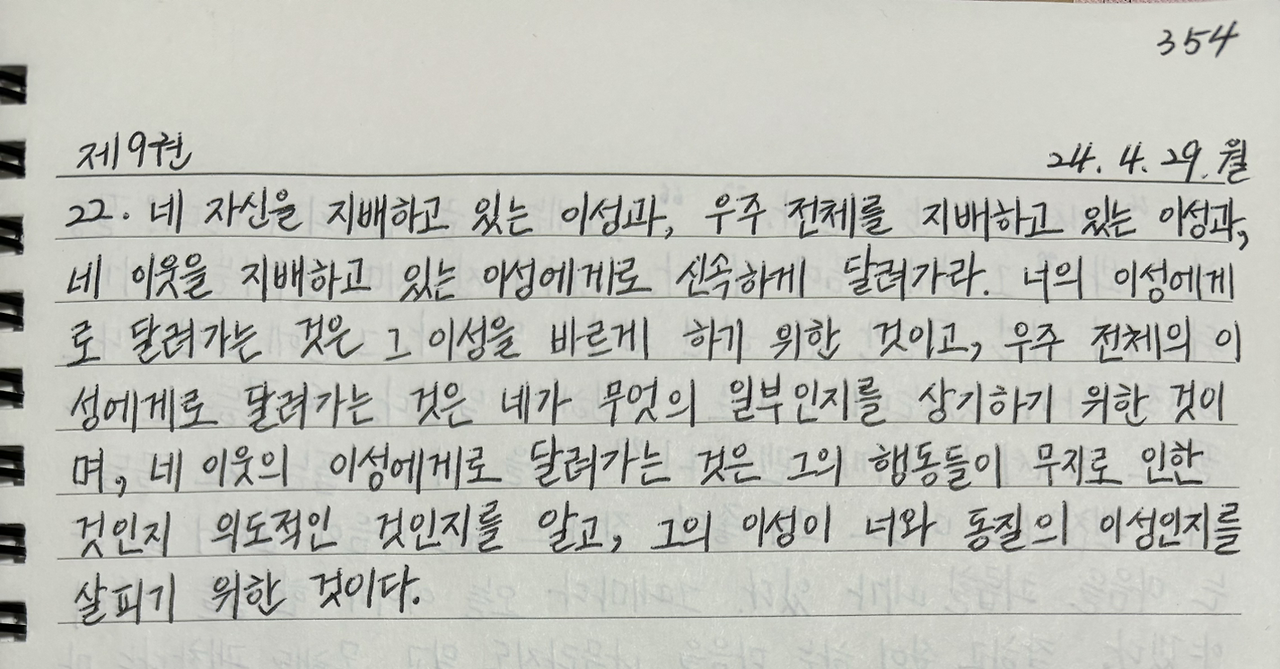 354
제9권 24. 4. 29. 월
22. 네 자신을 지배하고 있는 이성과, 우주 전체를 지배하고 있는 이성과,
네 이웃을 지배하고 있는 이성에게로 신속하게 달려가라. 너의 이성에게
로 달려가는 것은 그 이성을 바르게 하기 위한 것이고, 우주 전체의 이
성에게로 달려가는 것은 네가 무엇의 일부인지를 상기하기 위한 것이
며, 네 이웃의 이성에게로 달려가는 것은 그의 행동들이 무지로 인한
것인지 의도적인 것인지를 알고, 그의 이성이 너와 동질의 이성인지를
살피기 위한 것이다.